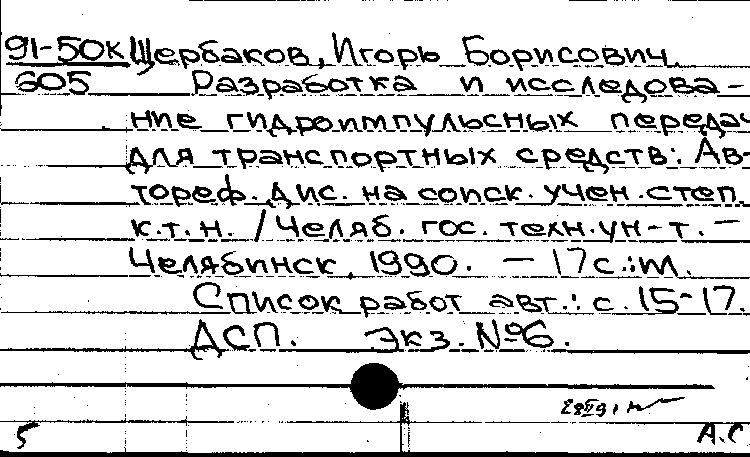 91-50к Щербаков, Игорь Борисович.
605 Разработка и исследова-
ние гидроимпульсных передач
для транспортных средств: Ав-
тореф. дис. на соиск. учен. степ.
к.т.н. / Челяб. гос. техн. ун-т. -
Челябинск, 1990. - 17с.:ил.
Список работ авт.: с. 15-17.
ДСП. Экз. №6.
5 А.С